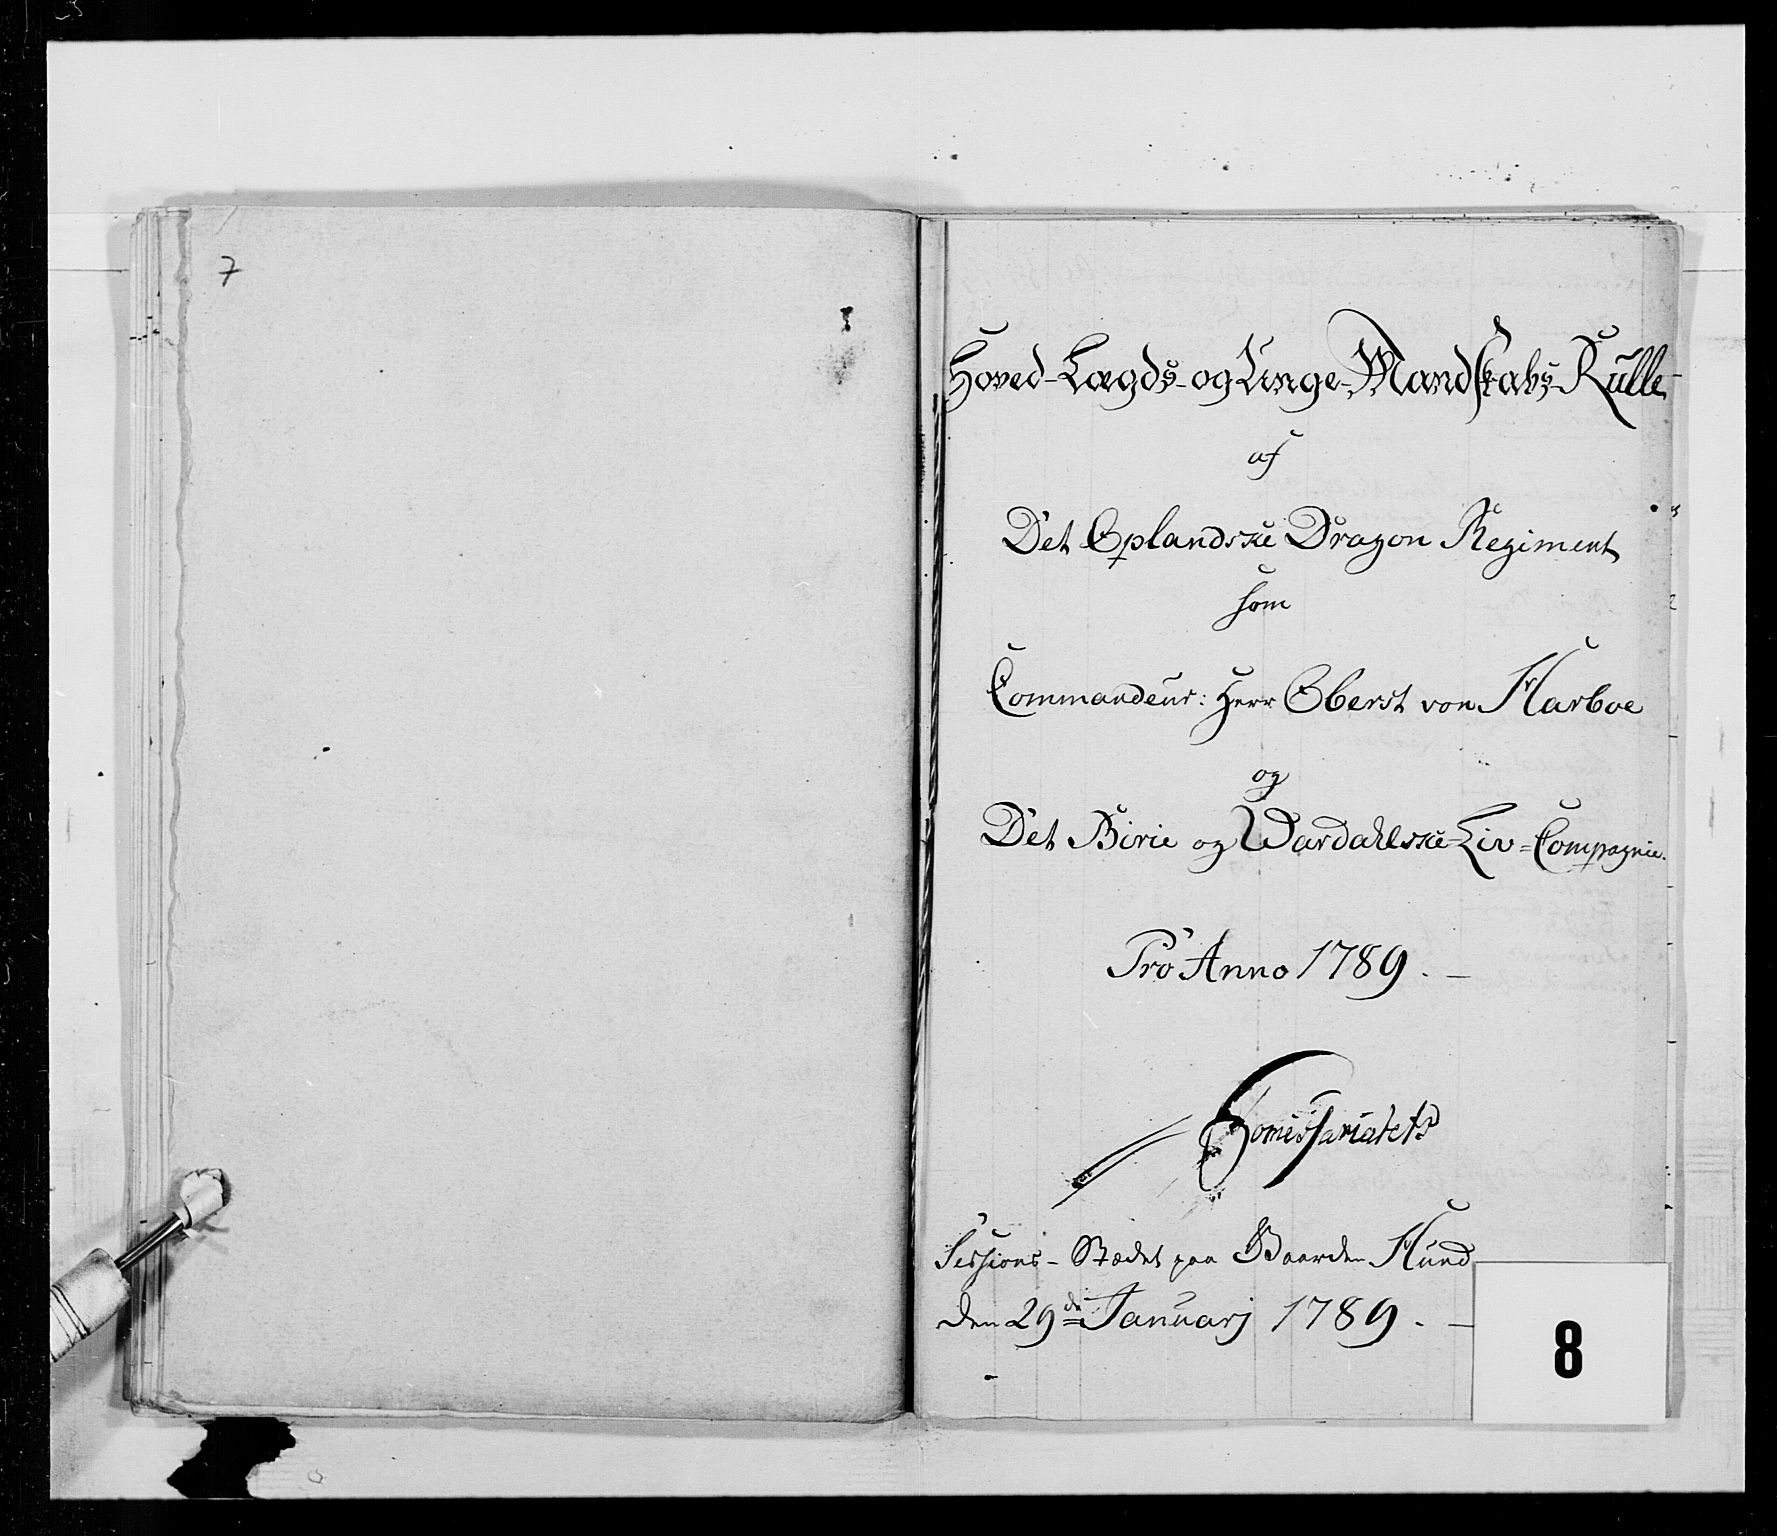 7
Hoved-Lægds-og Unge-Mandskabs-Rulle
af
Det Oplandske Dragon Regiment
som
Commandeur: Herr Oberst von Harboe
og
Det Birie og Wardahlske Liv=Compagnie.
Pro Anno 1789. —
Comissariatets
Sessions-Stædet paa Gaarden Hund
den 29de Januarj 1789. —
8